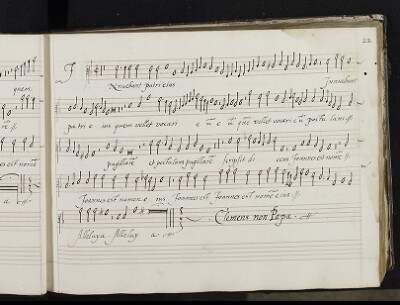 22
Innuebant patri eius Innuebant
patri e ius quem vellet vocari e ū e ū que vellet vocari etū postu lans
pugillarē et postulans pugillarē scripsit di cens Joannes est nomē
Joannes est nomen e ius Joannes est Joannes est nomē eius
Alleluya Alleluy a
Clemens non Papa
quem
est nomē
a